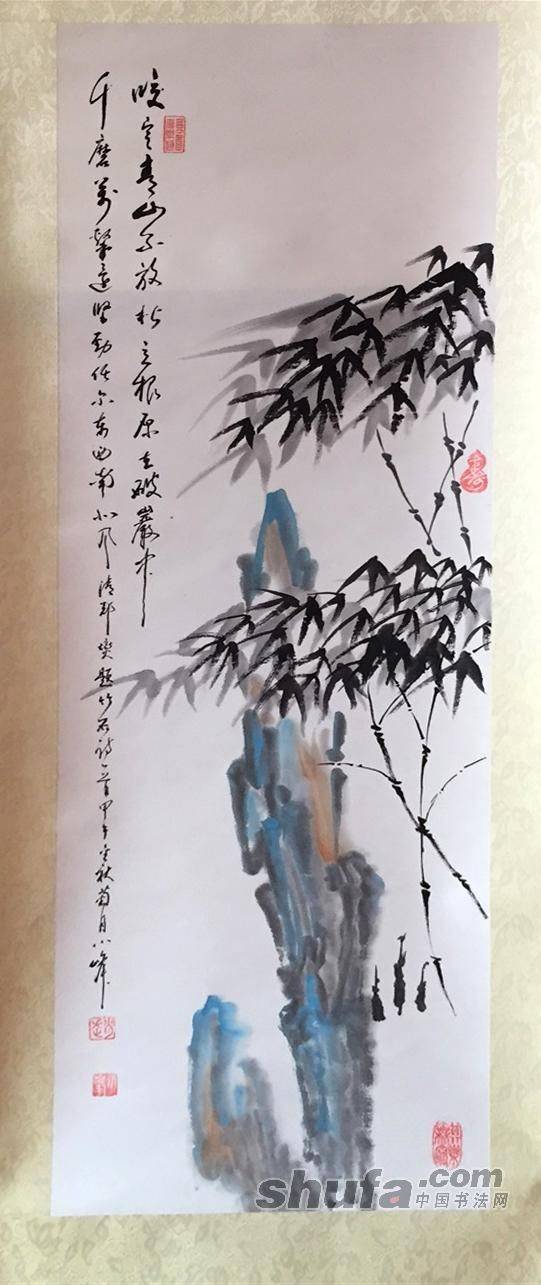 咬定青山不放松立根原在破巖中
千磨萬擊還堅勁任尔东西南北风清郑燮题竹石诗一首甲午金秋菊月小峰
shufa.com
中国书法网